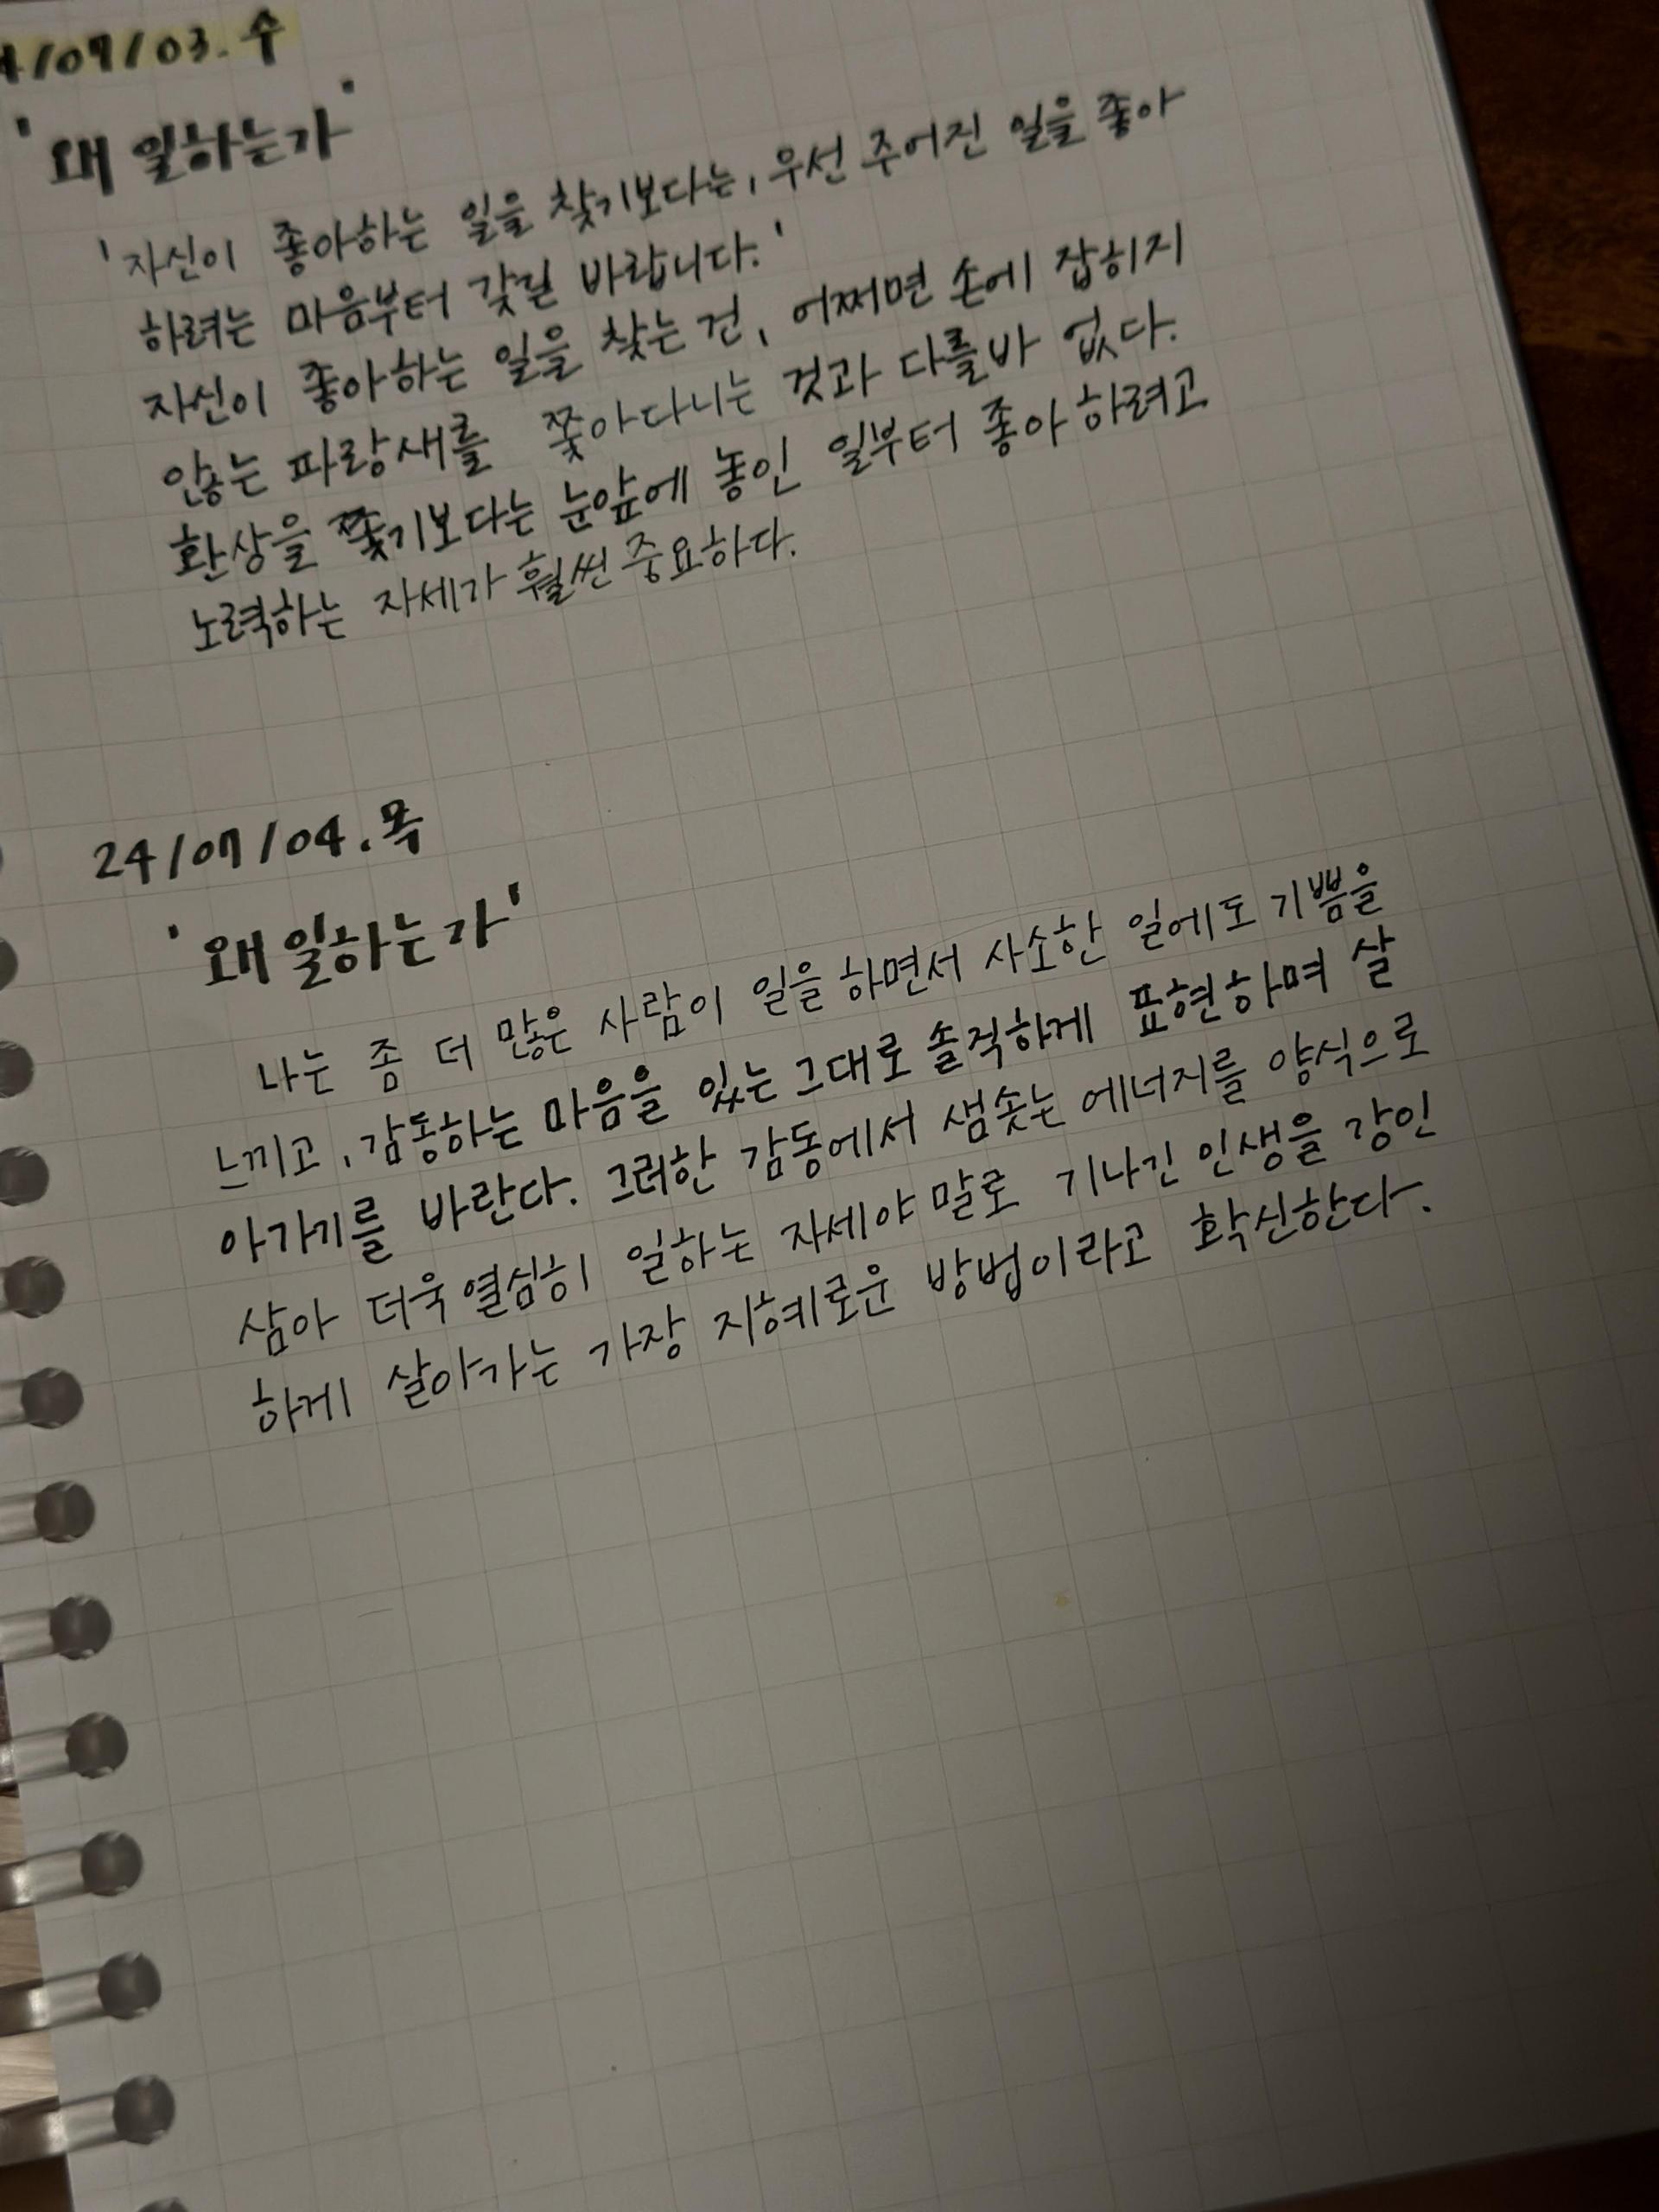 4/07/03.수
'왜 일하는가'
'자신이 좋아하는 일을 찾기보다는, 우선 주어진 일을 좋아
하려는 마음부터 갖길 바랍니다.'
자신이 좋아하는 일을 찾는 건, 어쩌면 손에 잡히지
않는 파랑새를 쫓아다니는 것과 다를바 없다.
환상을 쫓기보다는 눈앞에 놓인 일부터 좋아하려고
노력하는 자세가 훨씬 중요하다.
24/07/04.목
'왜 일하는가'
나는 좀 더 많은 사람이 일을 하면서 사소한 일에도 기쁨을
느끼고, 감동하는 마음을 있는 그대로 솔직하게 표현하며 살
아가기를 바란다. 그러한 감동에서 샘솟는 에너지를 양식으로
삼아 더욱 열심히 일하는 자세야 말로 기나긴 인생을 강인
하게 살아가는 가장 지혜로운 방법이라고 확신한다.